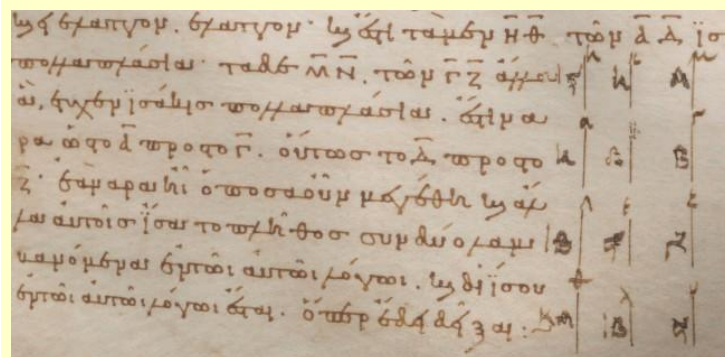 καὶ εἰ ἔλαττον, ἔλαττον· καὶ ἔστι τὰ μὲν Η̅ Θ̅ τῶν Α̅ Δ̅ ϊσ
πολλαπλάσια· τὰ δὲ Μ̅ Ν̅, τῶν Γ̅ Ζ̅ ἄλλα
ἃ, ἔτυχεν ϊσάκις πολλαπλάσια· ἔστιν α
ρα ὡς τὸ Α̅ πρὸς τὸ Γ̅· οὕτως τὸ Δ̅ πρὸς τὸ
Ζ̅· ἐὰν ἄρα ἦι ὁποσαοῦν μεγέθη καὶ ἄλ
λα αὐτοῖς ἴσα τὸ πλῆθος σύνδυο λαμβ
ανόμενα ἐν τῶι αὐτῶι λόγωι· καὶ δι ἴσου
ἐν τῶι αὐτῶι λόγωι ἔσται· ὅπερ ἔδει δεῖξαι: